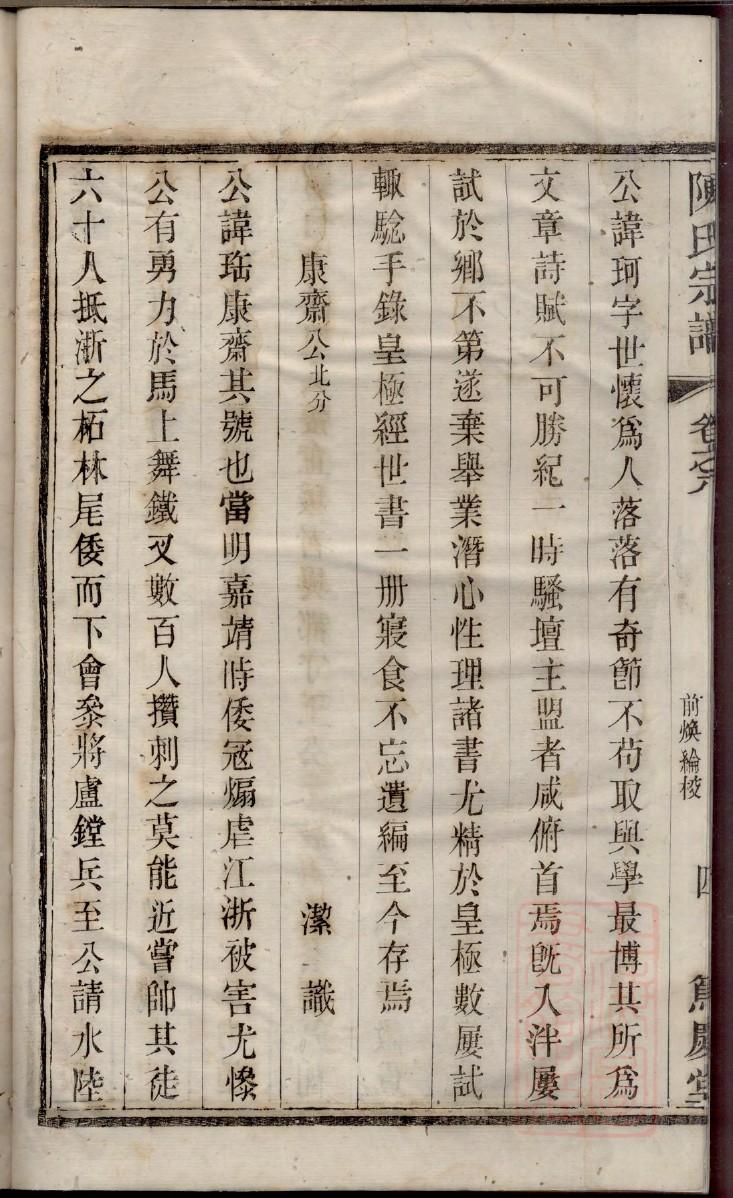 陳氏宗譜 卷之六 前煥綸校 四
公諱珂字世懷爲人落落有奇節不苟取與學最博其所爲
文章詩賦不可勝紀一時騷壇主盟者咸俯首焉旣入泮屢
試於鄉不第遂棄舉業潛心性理諸書尤精於皇極數屢試
輒驗手錄皇極經世書一册寢食不忘遺編至今存焉
康齋公北分 潔識
公諱珤康齋其號也當明嘉靖時倭冦煽虐江浙被害尤慘
公有勇力於馬上舞鐵叉數百人攢刺之莫能近嘗帥其徒
六十人抵浙之柘林尾倭而下會叅將盧鏜兵至公請水陸